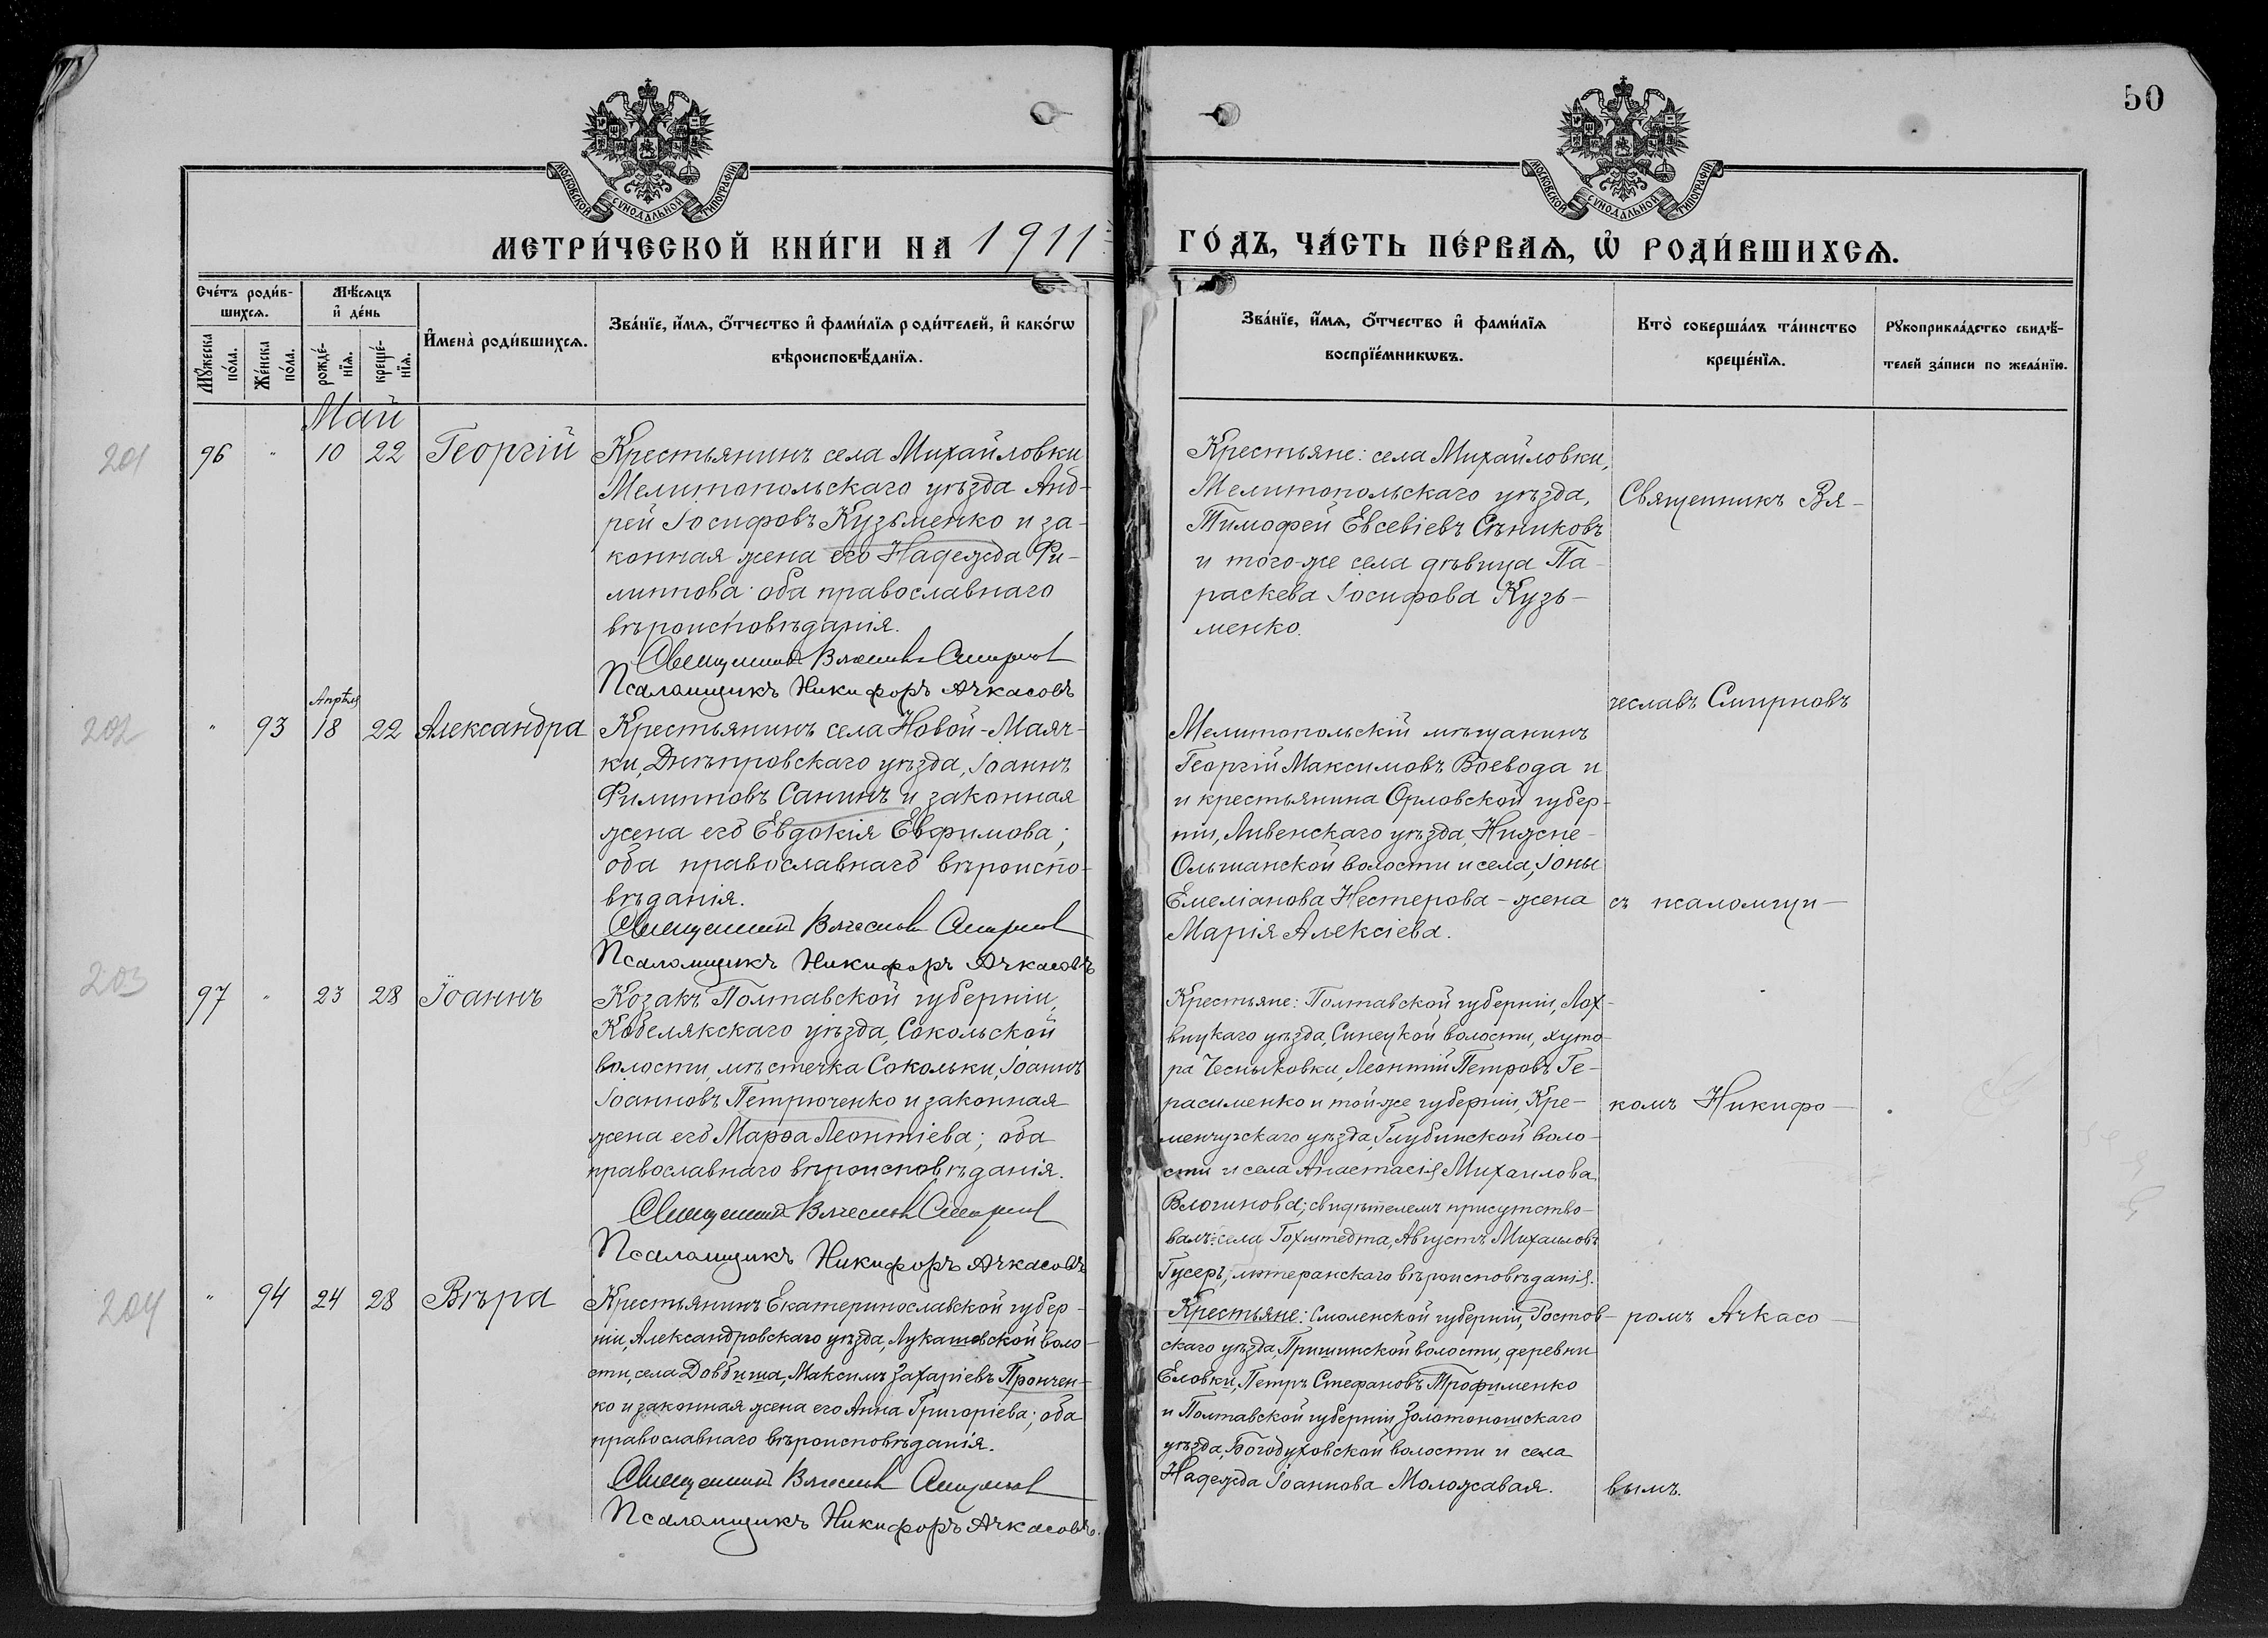 50
МОСКОВСКОЙ СѴНОДАЛЬНОЙ ТИПОГРАФІИ
МОСКОВСКОЙ СѴНОДАЛЬНОЙ ТИПОГРАФІИ
МЕТРИ́ЧЕСКОЙ КНИ́ГИ НА 1911
ГО́ДЪ, ЧА́СТЬ ПЕ́РВАѦ, Ѽ РОДИ́ВШИХСѦ.
Сче́тъ роди́в-
шихсѧ.
Мꙋ́жеска
по́ла.
Же́нска
по́ла.
Мѣ́сѧцъ
и҆ де́нь
рожде́-
нїѧ.
креще́-
нїѧ.
И҆мена̀ роди́вшихсѧ.
Зва́нїе, и҆́мѧ, ѻ҆́тчество и҆ фами́лїѧ роди́телей, и҆ како́гѡ
вѣроисповѣ́данїѧ.
Зва́нїе, и҆́мѧ, ѻ҆́тчество и҆ фами́лїѧ
воспрїе́мникѡвъ.
Кто̀ соверша́лъ та́инство
креще́нїѧ.
Рꙋкоприкла́дство свидѣ́-
телей за́писи по жела́нїю.
Май
201
96 " 10 22 Георгій
Крестьянинъ села Михайловки
Мелитопольскаго уѣзда Анд-
рей Іосифовъ Кузьменко и за-
конная жена его Надежда Фи-
липпова: оба православнаго
вѣроисповѣданія.
Священникъ Вячеславъ Смирнов
Псаломщикъ Никифоръ Ачкасовъ
Крестьяне: села Михайловки,
Мелитопольскаго уѣзда,
Тимофей Евсевіевъ Сѣниковъ
и того-же села дѣвица Па-
раскева Іосифова Кузь-
менко.
Священникъ Вя-
202
Апрѣля
" 93 18 22 Александра
Крестьянинъ села Новой-Маяч-
ки, Днѣпровскаго уѣзда, Іоаннъ
Филипповъ Санинъ и законная
жена его Евдокія Евфимова;
оба православнаго вѣроиспо-
вѣданія.
Священникъ Вячеслав Смирнов
Псаломщикъ Никифоръ Ачкасовъ
Мелитопольскій мѣщанинъ
Георгій Максимовъ Воевода и
и крестьянина Орловской губер-
ніи, Ливенскаго уѣзда, Нижне-
Ольшанской волости и села, Іоны
Емеліанова Нестерова - жена
Марія Алексіева.
чеславъ Смирновъ
съ псаломщи-
203
97 " 23 28 Іоаннъ
Козакъ Полтавской губерніи,
Кобелякскаго уѣзда, Сокольской
волости, мѣстечка Сокольки, Іоаннъ
Іоанновъ Петрюченко и законная
жена его Марѳа Леонтіева; оба
православнаго вѣроисповѣданія.
Священник Вячеслав Смирнов
Псаломщикъ Никифоръ Ачкасовъ
Крестьяне: Полтавской губерніи, Лох-
вицкаго уѣзда, Синецкой волости, хуто-
ра Чесныковки, Леонтій Петровъ Ге-
расименко и той-же губерніи, Кре-
менчугскаго уѣзда, Глубинской воло-
сти и села Анастасія Михаилова
свидѣтелемъ присутство-
валъ: села Гохштедта, Августъ Михаиловъ
Гусеръ, лютеранскаго вѣроисповѣданія.
комъ Никифо-
204
" 94 24 28 Вѣра
Крестьянинъ Екатеринославской губер-
ніи, Александровскаго уѣзда, Лукашовской воло-
сти, села Довбиша, Максимъ Захаріевъ Прончен-
ко и законная жена его Анна Григоріева; оба
православнаго вѣроисповѣданія.
Священник Вячеслав Смирнов
Псаломщикъ Никифоръ Ачкасовъ.
Крестьяне: Смоленской губерніи, Ростов-
скаго уѣзда, Пришинской волости, деревни
Еловки, Петръ Стефановъ Трофименко
и Полтавской губерніи Золотоношскаго
уѣзда, Богодуховской волости и села
Надежда Іоаннова Моложавая.
ромъ Ачкасо-
вымъ.